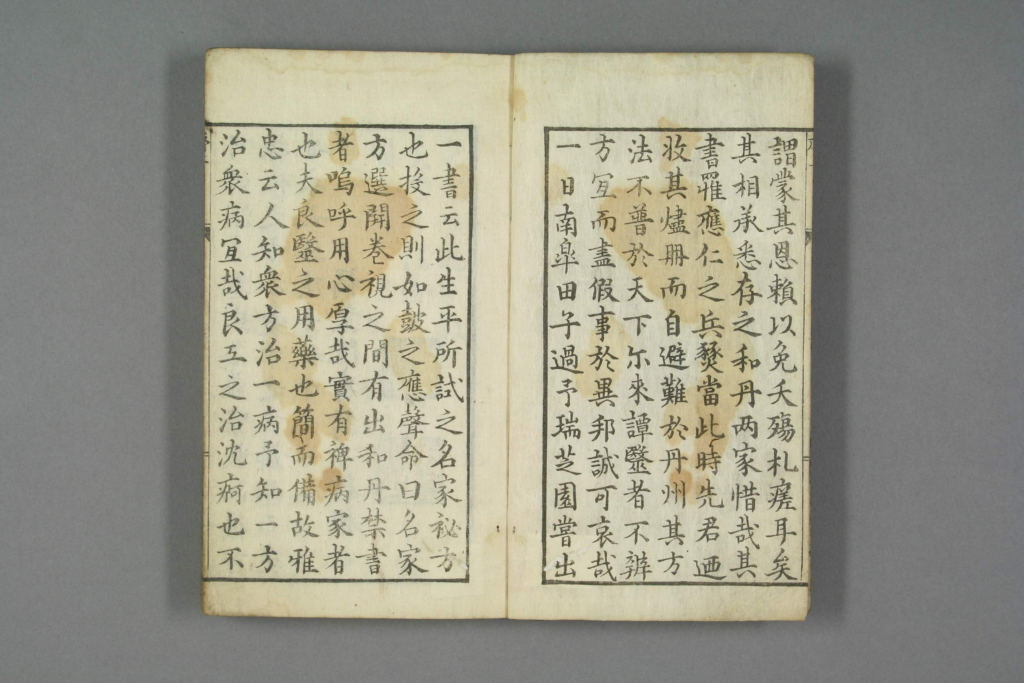 謂蒙其恩賴以免夭殤札瘥耳矣
其相承悉存之和丹两家惜哉其
書罹應仁之兵燹當此時先君迺
收其燼册而自避難於丹州其方
法不普於天下尓來譚毉者不辨
方冝而盡假事於異邦誠可哀哉
一日南皐田子過予瑞芝園嘗出
一書云此生平所試之名家祕方
也投之則如鼓之應聲命曰名家
方選開卷視之間有出和丹禁書
者嗚呼用心厚哉實有裨病家者
也夫良毉之用藥也簡而備故雅
忠云人知衆方治一病予知一方
治衆病冝哉良工之治沈痾也不